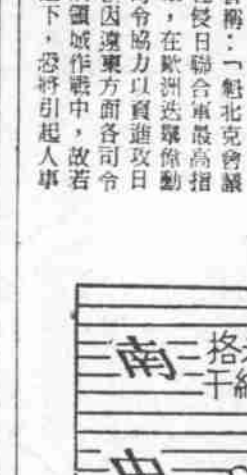 稱：「魁北克會議
侵日聯合軍最高指
，在歐洲迭舉偉動
司令協力以資進攻日
因遠東方面各司令
領域作戰中，故若
下，恐將引起人事
南